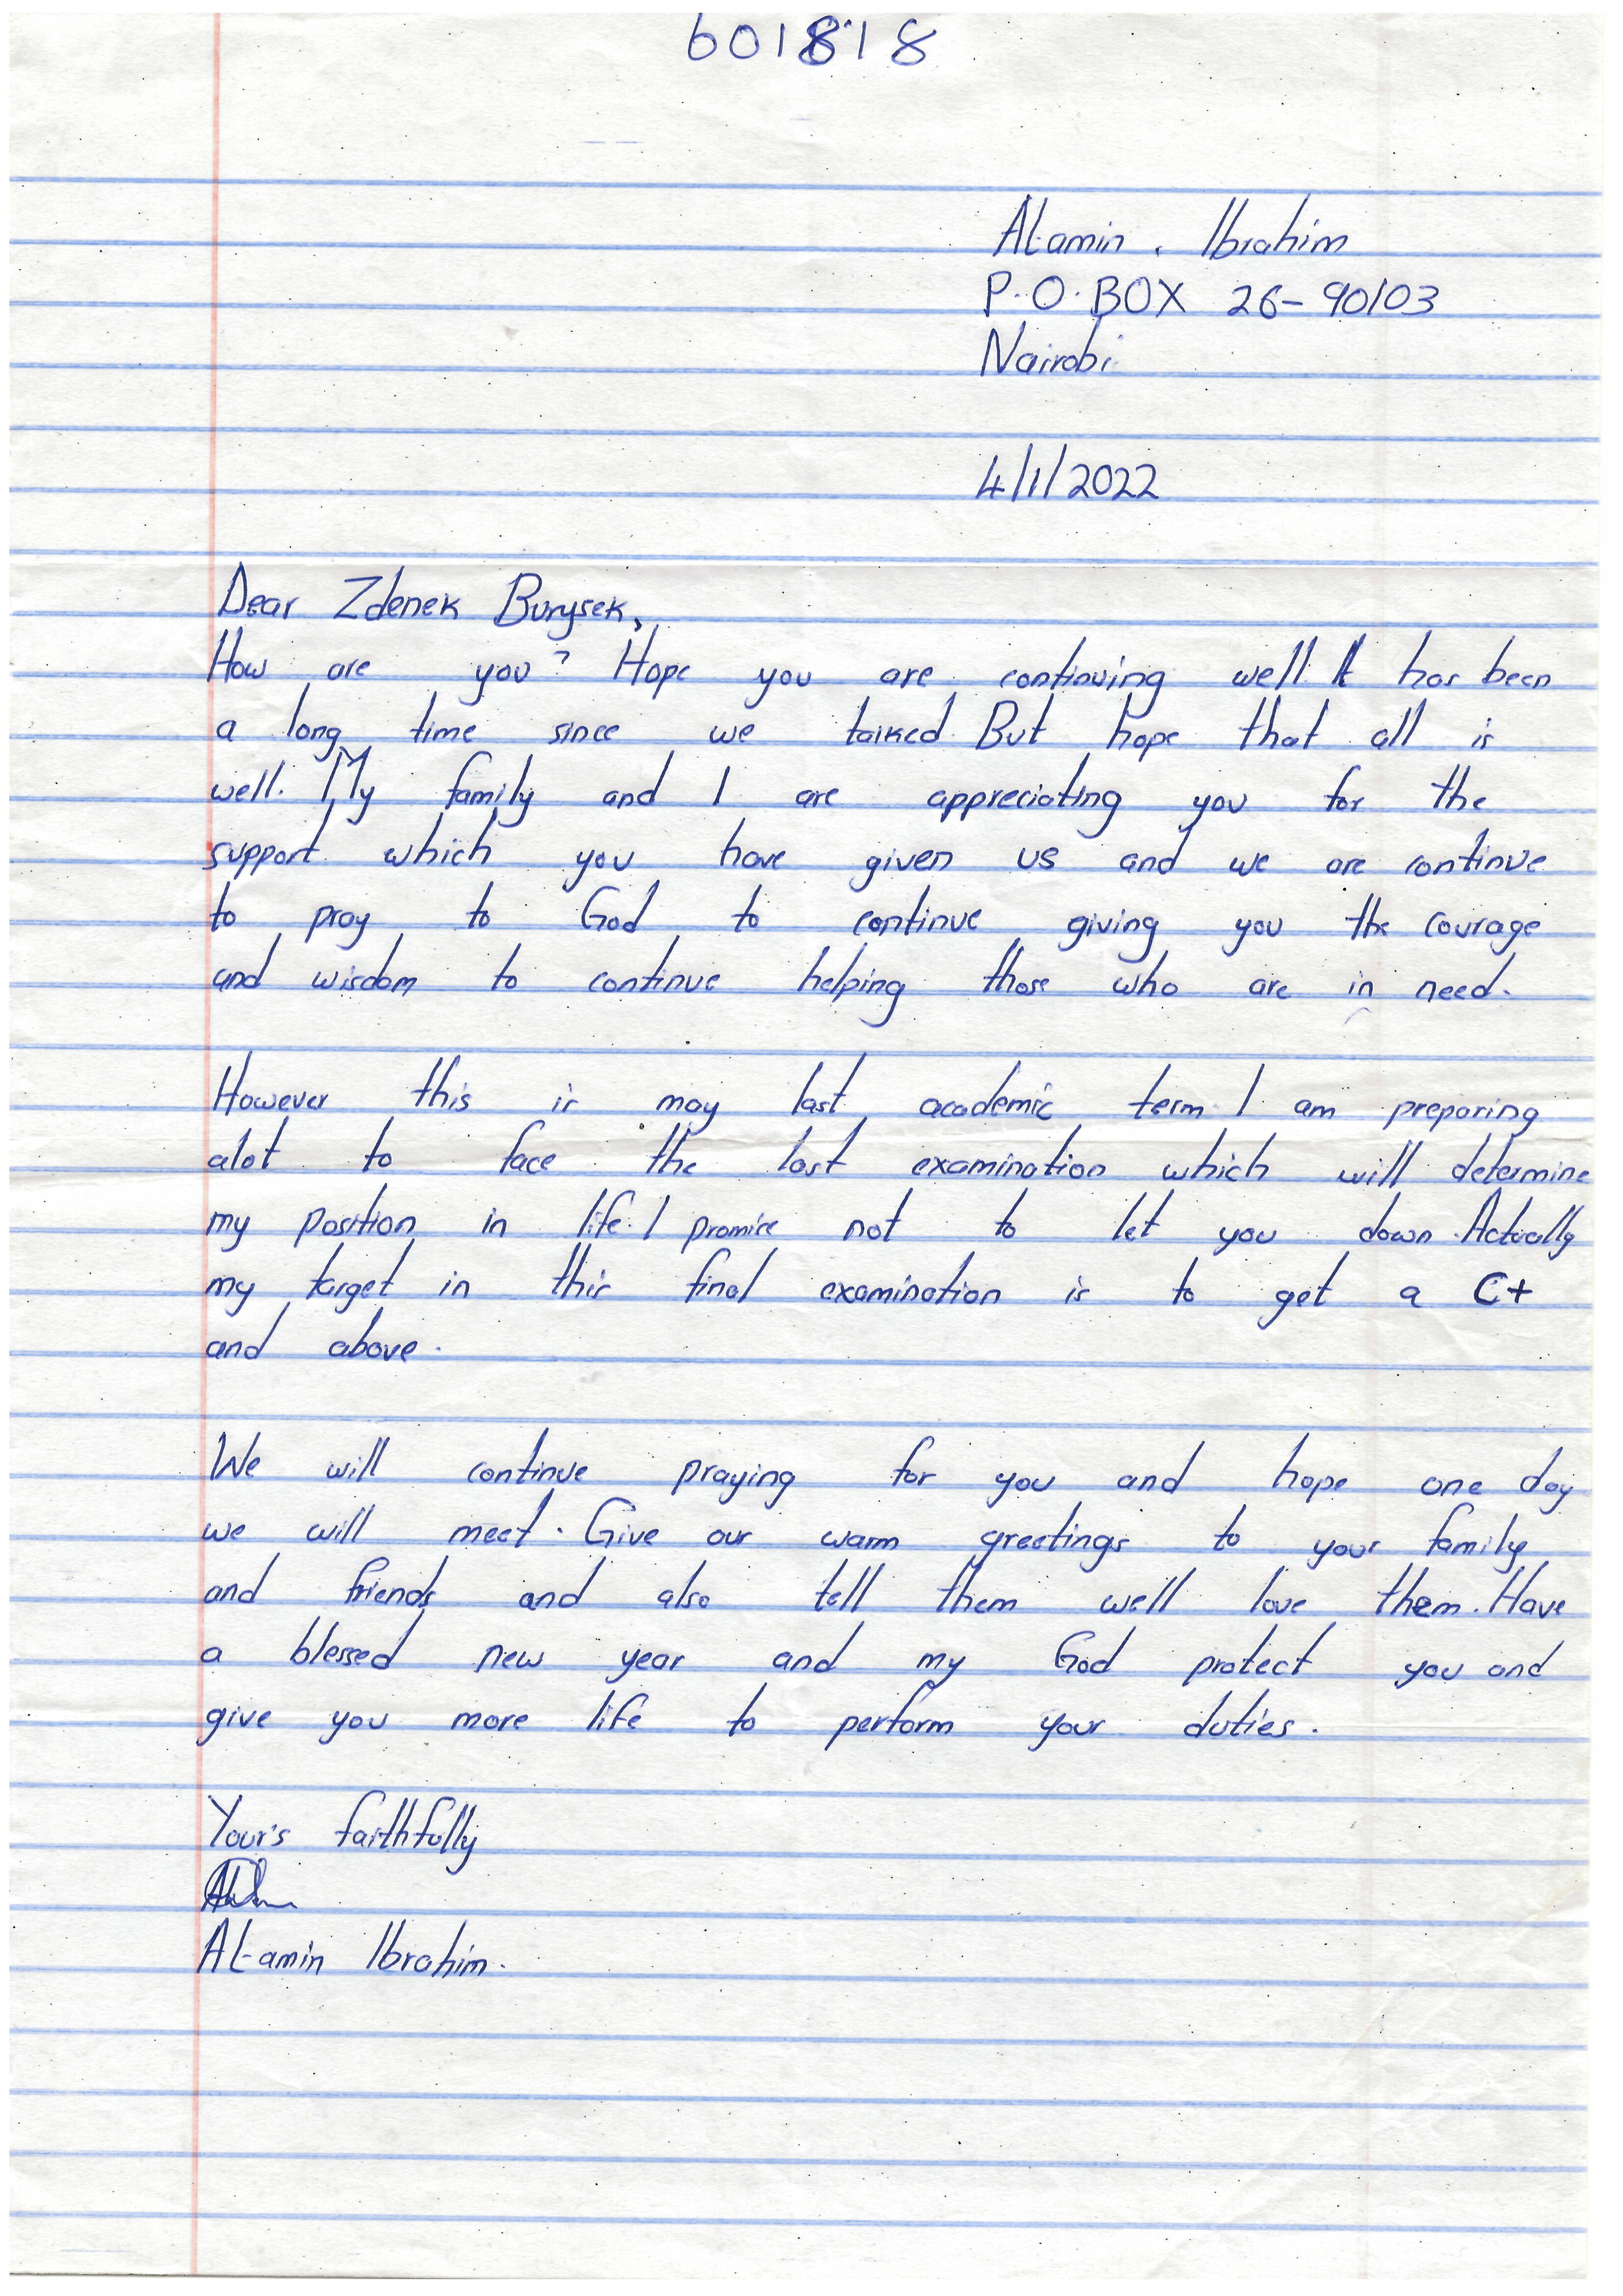 601818
Al-amin . Ibrahim
P.O.BOX 26-90103
Nairobi
4/1/2022
Dear Zdenek Burysek,
How are you? Hope you are continuing well. It has been
a long time since we talked. But hope that all is
well. My family and I are appreciating you for the
support which you have given us and we are continue
to pray to God to continue giving you the courage
and wisdom to continue helping those who are in need.
However this is may last academic term. I am preparing
alot to face the last examination which will determine
my position in life. I promise not to let you down. Actually
my target in this final examination is to get a C+
and above.
We will continue praying for you and hope one day
we will meet. Give our warm greetings to your family
and friends and also tell them well love them. Have
a blessed new year and my God protect you and
give you more life to perform your duties.
Your's faithfully
Al-amin Ibrahim.